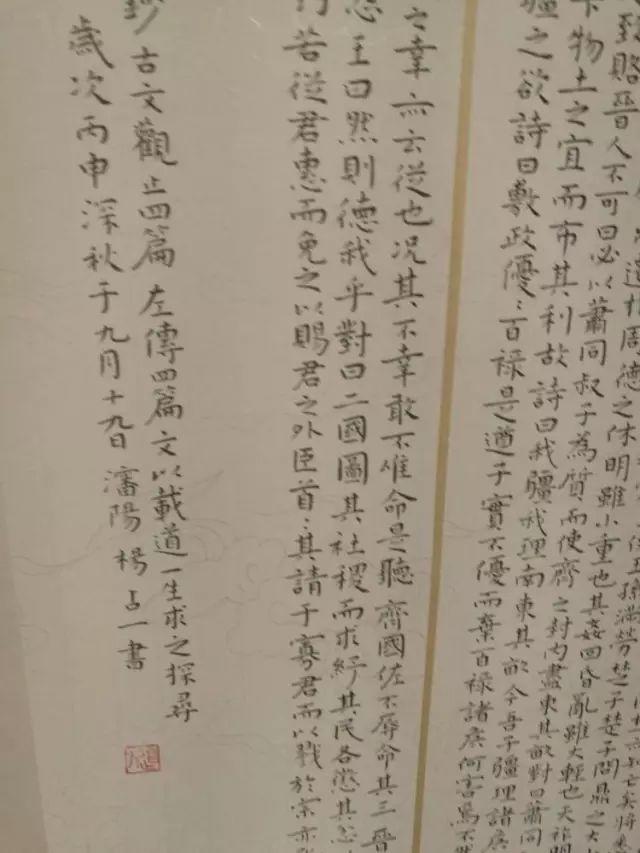 王孫滿勞楚子楚子問鼎之大
周德之休明雖小重也其姦回昏亂雖大輕也天祚明
致賂晉人不可曰必以蕭同叔子為質而使齊之封内盡東其畝對曰蕭同
物土之宜而布其利故詩曰我疆我理南東其畝今吾子疆理諸侯
疆之欲詩曰敷政優〻百禄是遒子實不優而棄百禄諸侯何害焉不然
之幸亦云從也况其不幸敢不唯命是聽 齊國佐不辱命其三晉
王曰然則德我乎對曰二國圖其社稷而求紓其民各懲其忿
若從君惠而免之以賜君之外臣首〻其請于寡君而以戮於宗亦
鈔古文觀止四篇左傳四篇文以載道一生求之探尋
歲次丙申深秋于九月十九日瀋陽楊占一書